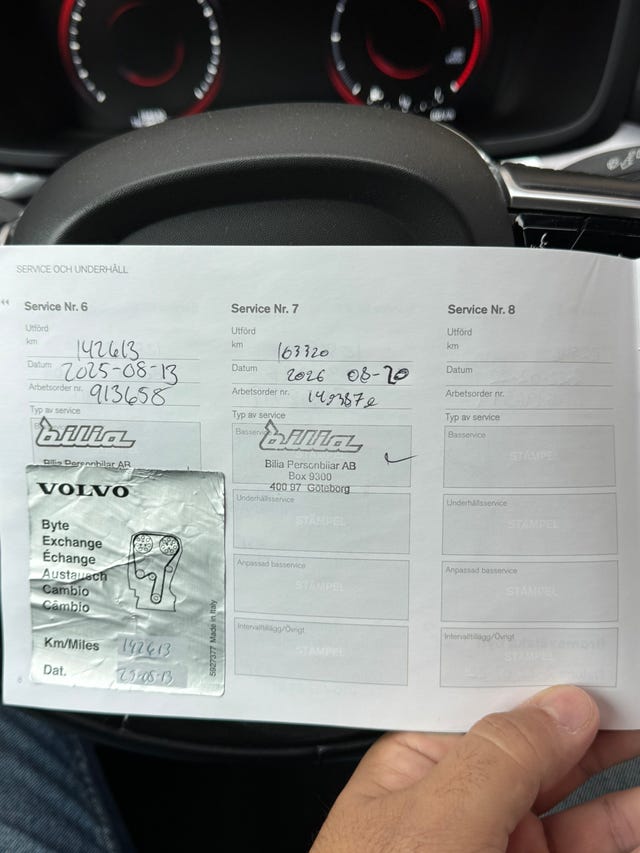 SERVICE OCH UNDERHÅLL
Service Nr. 6
Utförd
km 142613
Datum 2025-08-13
Arbetsorder nr. 913658
Typ av service
bilia
Bilia Personbilar AB
VOLVO
Byte
Exchange
Échange
Austausch
Cambio
Câmbio
Km/Miles 142613
Dat. 25-08-13
5927377 Made in Italy
6
Service Nr. 7
Utförd
km 163320
Datum 2026 08-20
Arbetsorder nr.
Typ av service
Basservice
bilia
Bilia Personbilar AB
Box 9300
400 97 Göteborg
Underhållsservice
STÄMPEL
Anpassad basservice
STÄMPEL
Intervalltillägg/Övrigt
STÄMPEL
Service Nr. 8
Utförd
km
Datum
Arbetsorder nr.
Typ av service
Basservice
STÄMPEL
Underhållsservice
STÄMPEL
Anpassad basservice
STÄMPEL
Intervalltillägg/Övrigt
STÄMPEL